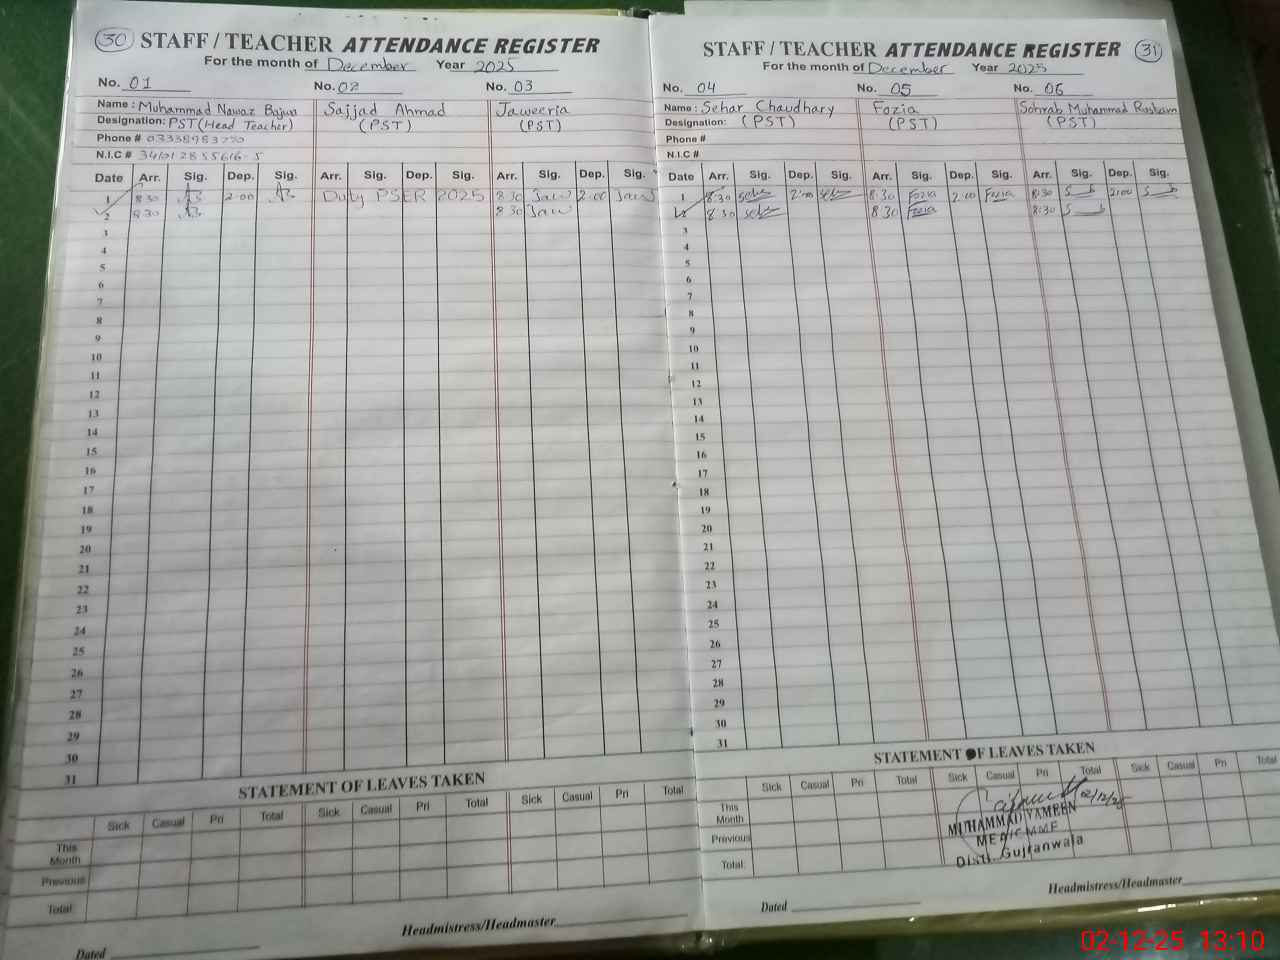 30 STAFF / TEACHER ATTENDANCE REGISTER
For the month of December Year 2025
No. 01 No. 02 No. 03
Name : Muhammad Nawaz Bajwa Sajjad Ahmad Jaweeria
Designation: PST (Head Teacher) (PST) (PST)
Phone #
N.I.C #
Date Arr. Sig. Dep. Sig. Arr. Sig. Dep. Sig. Arr. Sig. Dep. Sig.
1 8:30 2:00 Duty PSER 2025 8:30 Jaw 2:00 Jaw
2 8:30 8:30 Jaw
3
4
5
6
7
8
9
10
11
12
13
14
15
16
17
18
19
20
21
22
23
24
25
26
27
28
29
30
31
STATEMENT OF LEAVES TAKEN
Sick Casual Pri Total Sick Casual Pri Total Sick Casual Pri Total
This Month
Previous
Total
Headmistress/Headmaster
Dated
STAFF / TEACHER ATTENDANCE REGISTER 31
For the month of December Year 2025
No. 04 No. 05 No. 06
Name : Sehar Chaudhary Fozia Sohrab Muhammad Rustam
Designation: (PST) (PST) (PST)
Phone #
N.I.C #
Date Arr. Sig. Dep. Sig. Arr. Sig. Dep. Sig. Arr. Sig. Dep. Sig.
1 8:30 2:00 8:30 Fozia 2:00 Fozia 8:30 2:00
2 8:30 8:30 Fozia 8:30
3
4
5
6
7
8
9
10
11
12
13
14
15
16
17
18
19
20
21
22
23
24
25
26
27
28
29
30
31
STATEMENT OF LEAVES TAKEN
Sick Casual Pri Total Sick Casual Pri Total Sick Casual Pri Total
This Month
Previous
Total
02/12/25
MUHAMMAD YAMEEN
Distt. Gujranwala
Headmistress/Headmaster
Dated
02-12-25 13:10